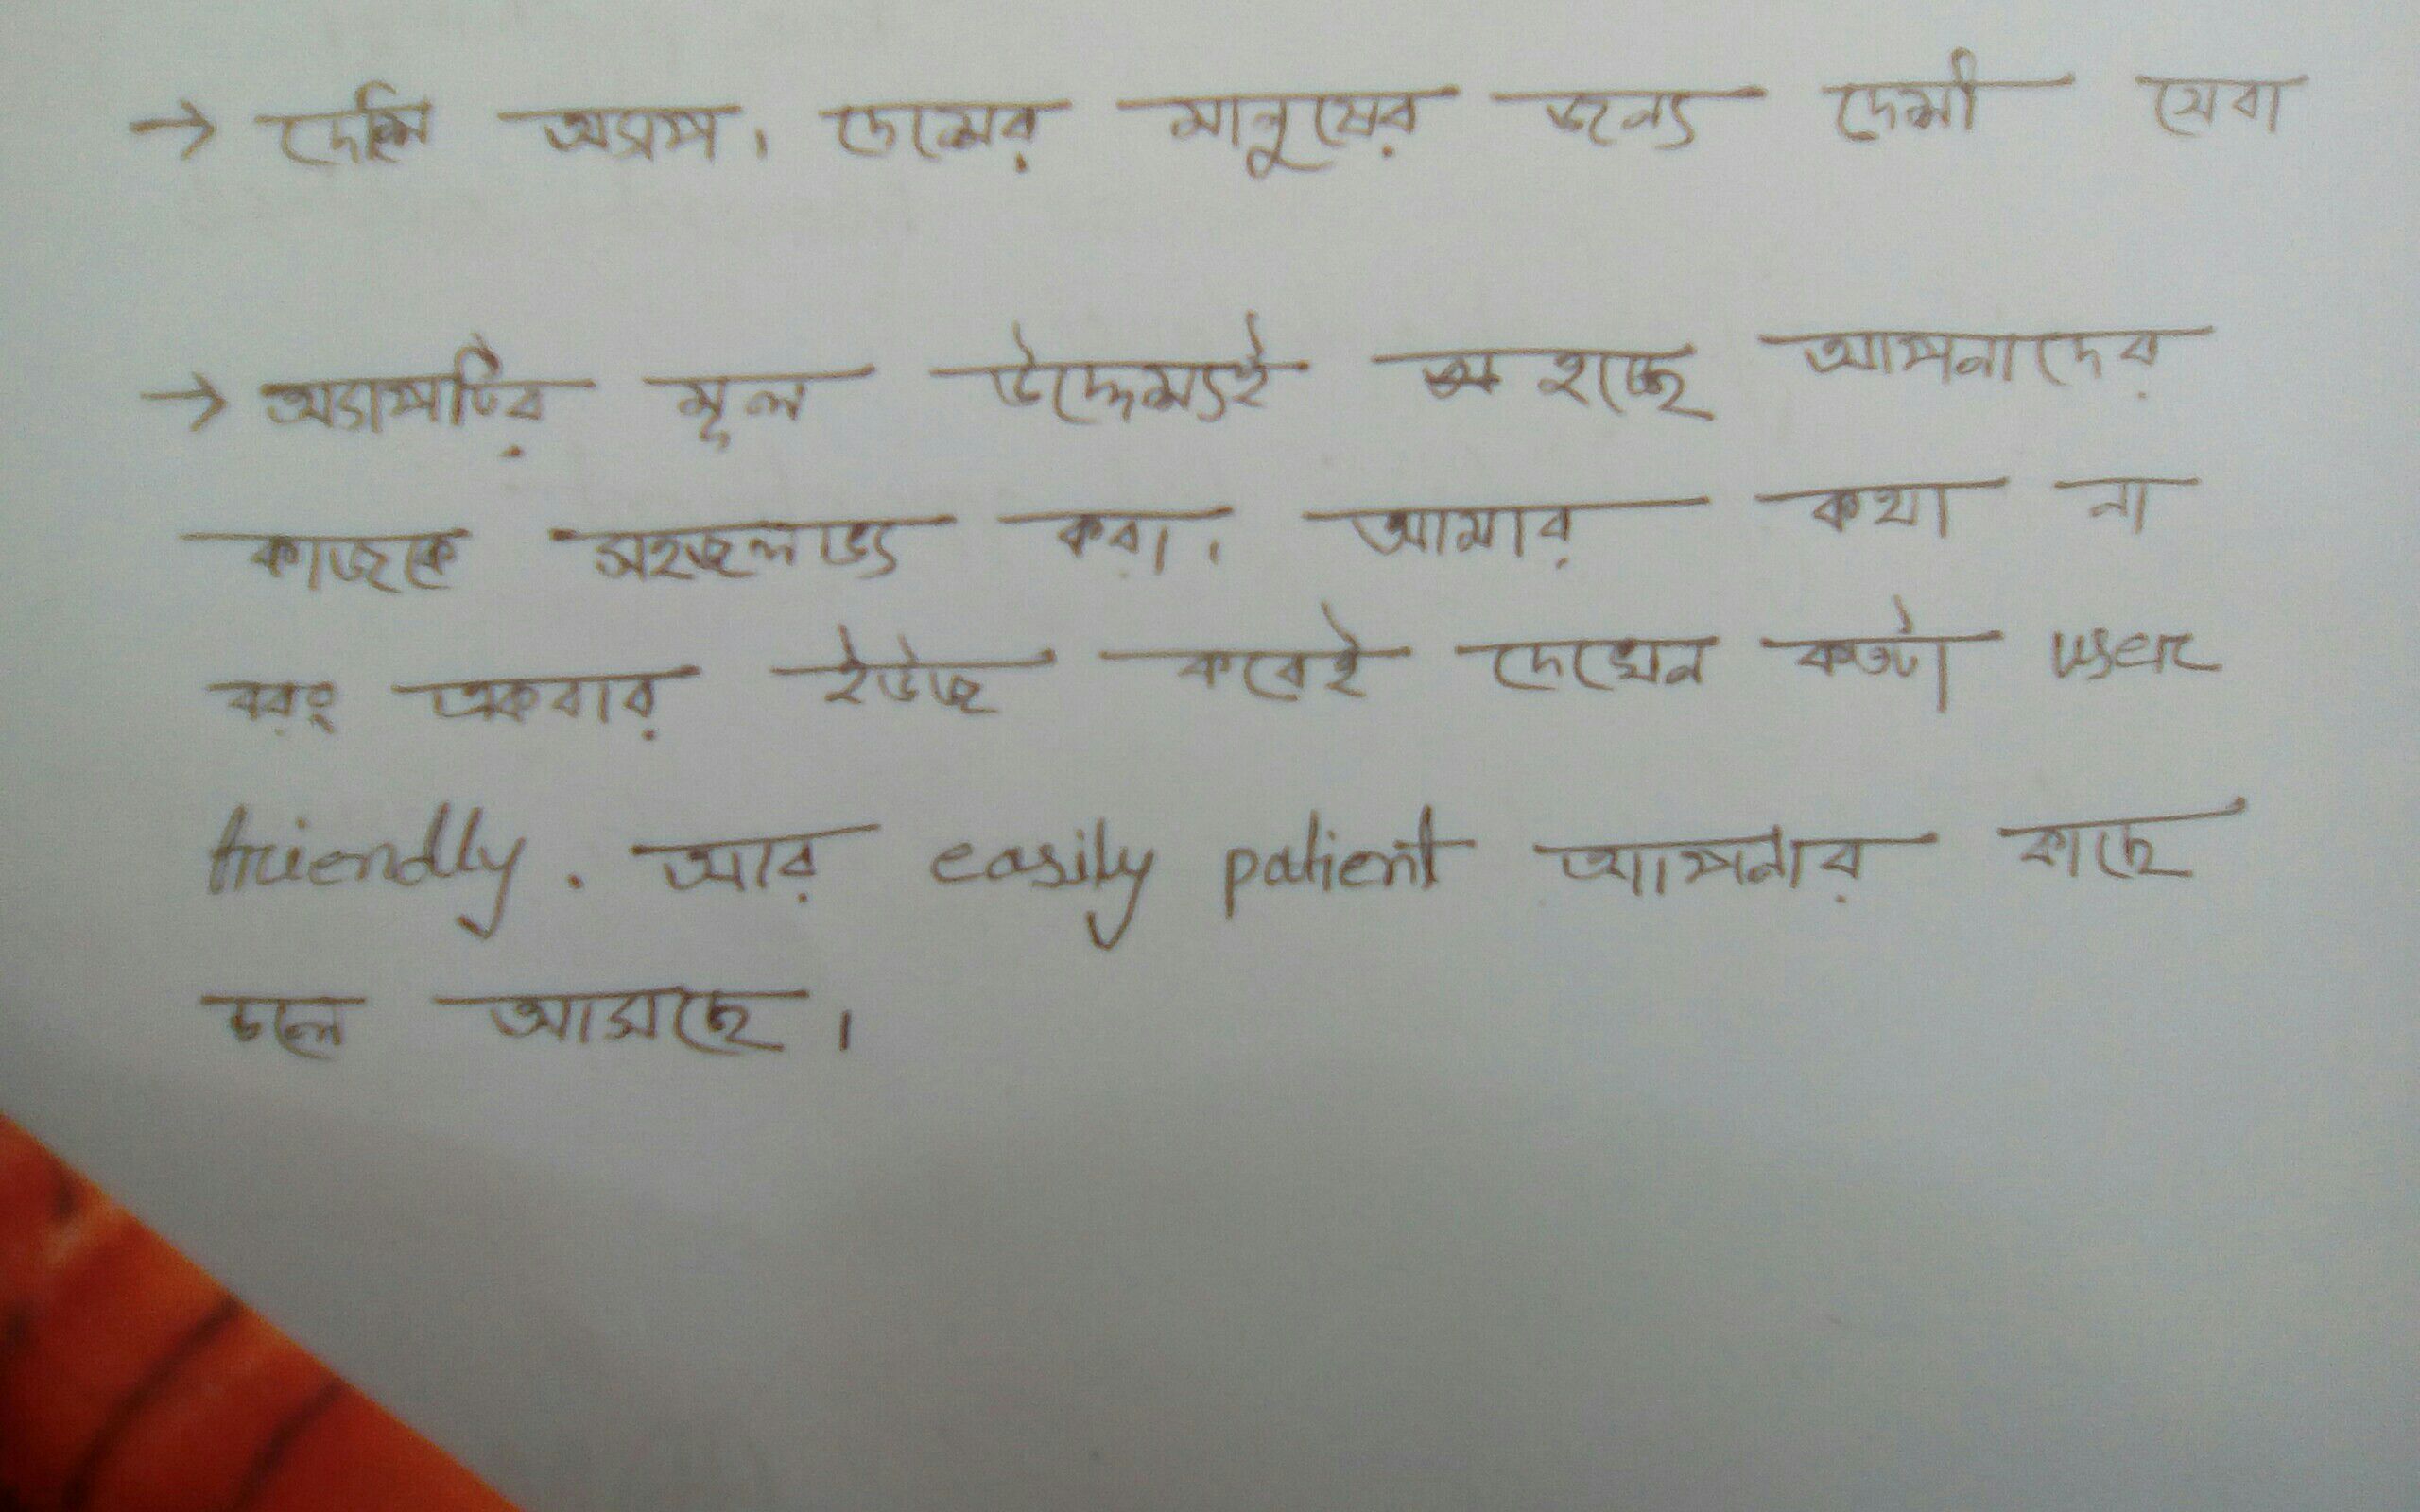 → দেশি অ্যাপ। দেশের মানুষের জন্য দেশী সেবা
→ অ্যাপটির মূল উদ্দেশ্যই হচ্ছে আপনাদের
কাজকে সহজলভ্য করা। আমার কথা না
বরং একবার ইউজ করেই দেখেন কতটা user
friendly. আর easily patient আপনার কাছে
চলে আসছে।